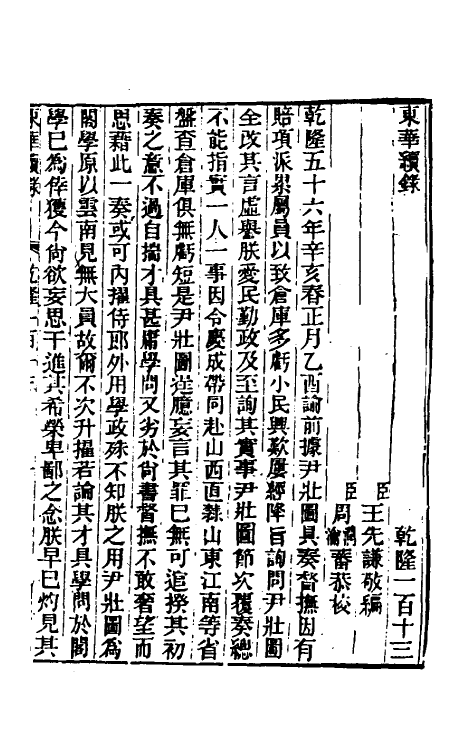 東華續錄　乾隆一百十三
臣王先謙敬編
臣周潤蕃恭校
乾隆五十六年辛亥春正月乙酉諭前據尹壯圖具奏督撫因有
賠項派累屬員以致倉庫多虧小民興歎屢經降旨詢問尹壯圖
全改其言虛譽朕愛民勤政及至詢其實事尹壯圖節次覆奏總
不能指實一人一事因令慶成帶同赴山西直隸山東江南等省
盤查倉庫俱無虧短是尹壯圖逞臆妄言其罪已無可逭揆其初
奏之意不過自揣才具甚庸學問又劣於尙書督撫不敢奢望而
思藉此一奏或可內擢侍郎外用學政殊不知朕之用尹壯圖爲
閣學原以雲南見無大員故爾不次升擢若論其才具學問於閣
學已爲倖獲今尙欲妄思干進其希榮卑鄙之念朕早已灼見其
東華續錄　乾隆一百十三